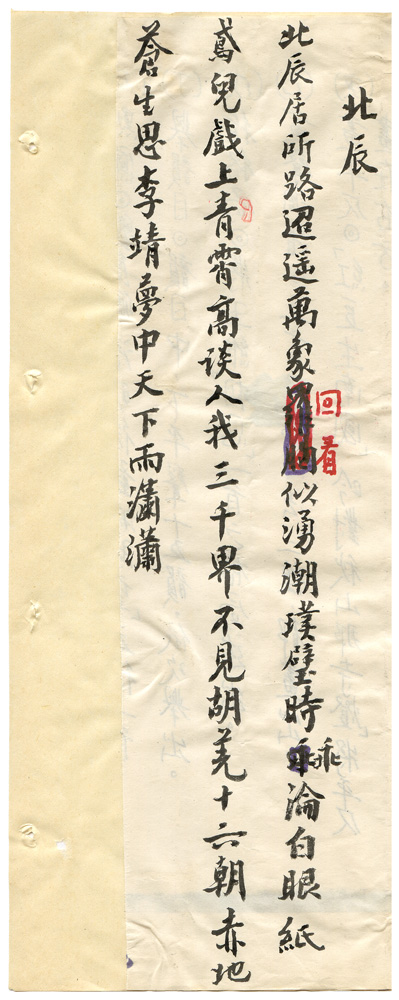 北辰
北辰居所路迢遥萬象回看似湧潮璞璧時乖淪白眼紙
鳶兒戲上青霄高談人我三千界不見胡羌十六朝赤地
蒼生思李靖夢中天下雨瀟瀟